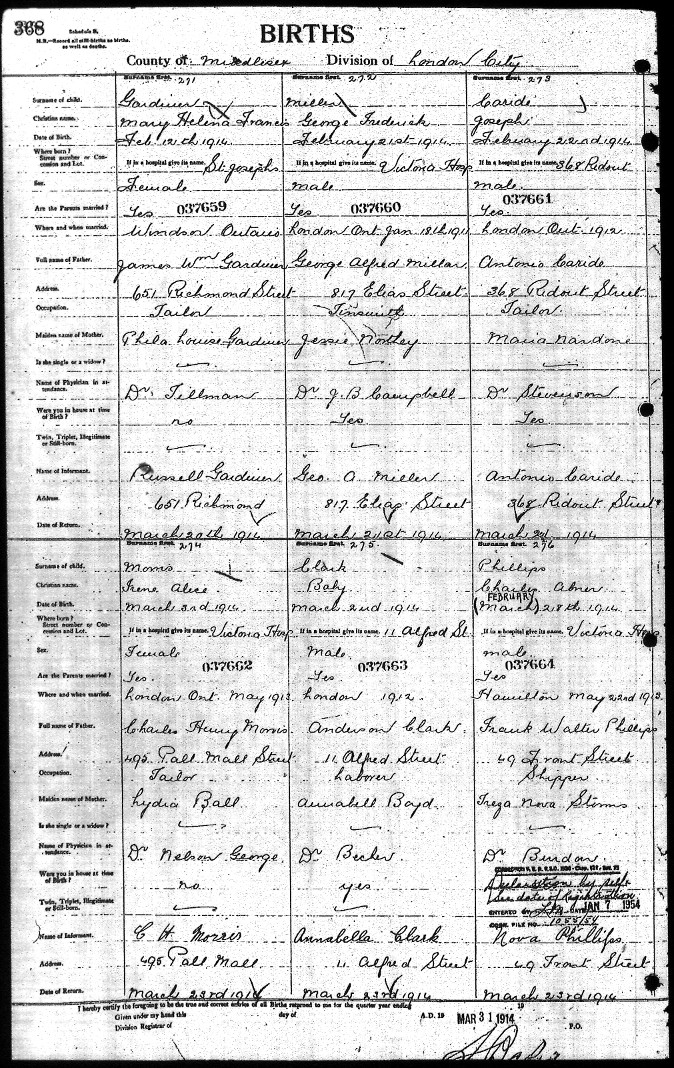 368
Schedule B.
N.B.—Record all still-births as births, as well as deaths.
BIRTHS
County of Middlesex Division of London City
Surname first. 271 Surname first. 272 Surname first. 273
Surname of child. Gardiner Miller Caride
Christian name. Mary Helena Francis George Frederick Joseph
Date of Birth. Feb 12th 1914 February 21st 1914 February 22nd 1914
Where born?
Street number or Concession and Lot. If in a hospital give its name. St Josephs If in a hospital give its name. Victoria Hosp If in a hospital give its name. 368 Ridout
Sex. Female male male
Are the Parents married? Yes 037659 Yes 037660 Yes. 037661
Where and when married. Windsor Ontario London Ont Jan 18th 1911 London Ont. 1912
Full name of Father. James Wm Gardiner George Alfred Millar Antonio Caride
Address. 651 Richmond Street 817 Elias Street. 368 Ridout Street
Occupation. Tailor Tinsmith Tailor.
Maiden name of Mother. Phila Louise Gardiner Jessie Northey Maria Nardone
Is she single or a widow?
Name of Physician in attendance. Dr. Tillman Dr J. B Campbell Dr Stevenson
Were you in house at time of Birth? no Yes Yes.
Twin, Triplet, Illegitimate or Still-born.
Name of Informant. Russell Gardiner Geo. A Miller Antonio Caride
Address 651 Richmond 817 Elias Street 368 Ridout Street
Date of Return. March 20th 1914 March 21st 1914 March 1914
Surname first. 274 Surname first. 275 Surname first. 276
Surname of child. Morris Clark Phillips
Christian name. Irene Alice Baby Charles Abner
FEBRUARY
Date of Birth. March 3rd 1914 March 2nd 1914 (March) 28th 1914
Where born?
Street number or Concession and Lot. If in a hospital give its name. Victoria Hosp If in a hospital give its name. 11 Alfred St. If in a hospital give its name. Victoria Hosp
Sex. Female Male male
Are the Parents married? Yes. 037662 Yes. 037663 Yes 037664
Where and when married. London Ont. May 1912 London 1912. Hamilton May 22nd 1913
Full name of Father. Charles Henry Morris Anderson Clark. Frank Walter Phillips
Address. 495 Pall Mall Street 11 Alfred Street 49 Front Street
Occupation. Tailor Laborer Shipper
Maiden name of Mother. Lydia Ball Annabell Boyd Treza Nova Storms
Is she single or a widow?
Name of Physician in attendance. Dr Nelson George Dr Becher Dr Burdon
Were you in house at time of Birth? no yes
Declaration by self
see date of Registration
Twin, Triplet, Illegitimate or Still-born.
ENTERED BY DATE JAN 7 1954
CORR. FILE NO.
Name of Informant. C H Morris Annabella Clark Nova Phillips
Address. 495 Pall Mall 11 Alfred Street 49 Front Street
Date of Return. March 23rd 1914 March 23rd 1914 March 23rd 1914
I hereby certify the foregoing to be the true and correct entries of all Births returned to me for the quarter year ending 19
Given under my hand this day of A.D. 19 MAR 31 1914
Division Registrar of P.O.